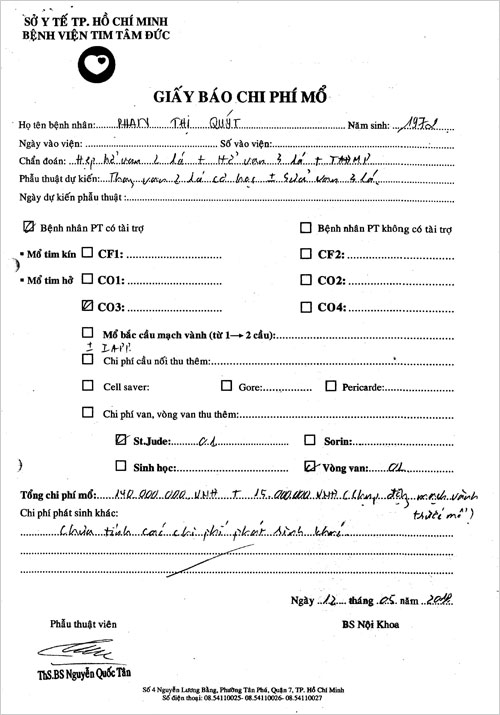 SỞ Y TẾ TP. HỒ CHÍ MINH
BỆNH VIỆN TIM TÂM ĐỨC
GIẤY BÁO CHI PHÍ MỔ
Họ tên bệnh nhân: PHAN THỊ QUÝT Năm sinh: 1972
Ngày vào viện: Số vào viện:
Chẩn đoán: Hẹp hở van 2 lá + Hở van 3 lá + TAĐMP
Phẫu thuật dự kiến: Thay van 2 lá cơ học ± Sửa van 3 lá.
Ngày dự kiến phẫu thuật :
Bệnh nhân PT có tài trợ Bệnh nhân PT không có tài trợ
• Mổ tim kín CF1: CF2:
• Mổ tim hở CO1: CO2:
CO3: CO4:
Mổ bắc cầu mạch vành (từ 1→ 2 cầu):
±
Chi phí cầu nối thu thêm:
Cell saver: Gore: Pericarde:
Chi phí van, vòng van thu thêm:
St.Jude: 01 Sorin:
Sinh học: Vòng van: 01
Tổng chi phí mổ: 140.000.000 VNĐ + 15.000.000 VNĐ (Chụp động mạch vành
trước mổ)
Chi phí phát sinh khác:
Chưa tính các chi phí phát sinh khác
Ngày 12 tháng 05 năm
Phẫu thuật viên BS Nội Khoa
ThS.BS Nguyễn Quốc Tân
Số 4 Nguyễn Lương Bằng, Phường Tân Phú, Quận 7, TP. Hồ Chí Minh
Số điện thoại: 08.54110025- 08.54110026- 08.54110027